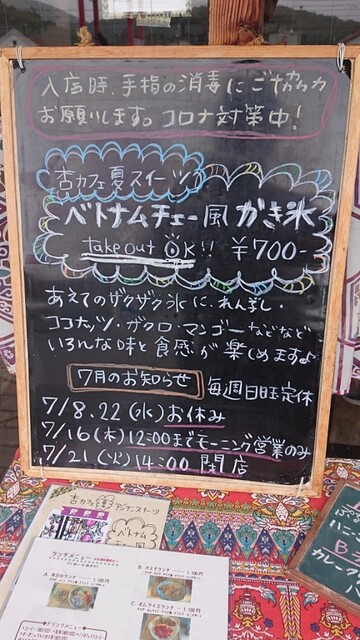 入店時、手指の消毒にご協力
お願いします。コロナ対策中!
杏カフェ夏スイーツ
ベトナムチェー風かき氷
take out OK!! ¥700-
あえてのザクザク氷に、れんずし・
ココナッツ・ザクロ・マンゴーなどなど
いろんな味と食感が楽しめますよ
7月のお知らせ 毎週日曜定休
7/8.22(水)お休み
7/16(木)12:00までモーニング営業のみ
7/21(火)14:00閉店
杏カフェ
ベトナム
ランチメニュー
A.
B.
C. オムライスランチ
1,100円
ドリンクメニュー